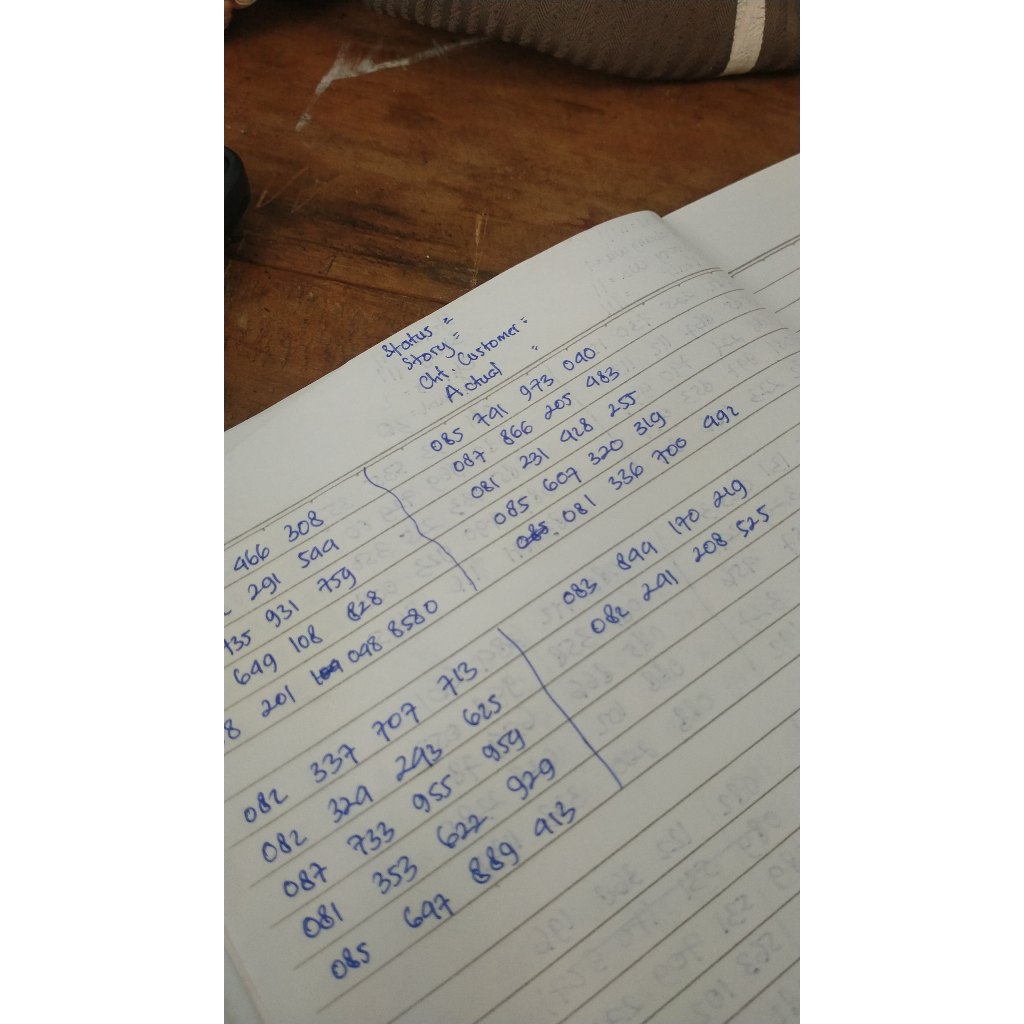 Status =
Story =
Cht. Customer =
Actual =
466 308
291 599
735 931 759
649 108 828
8 201 098 8580
085 791 973 090
087 866 205 483
081 231 428 255
085 607 320 319
081 336 700 492
082 337 707 713
082 329 293 625
087 733 955 959
081 353 622 929
085 697 889 913
083 899 170 219
082 291 208 525